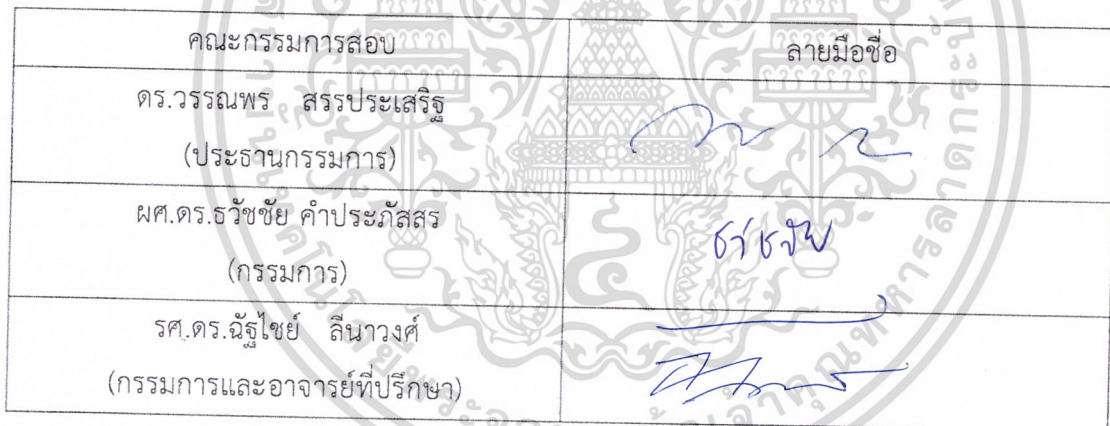 คณะกรรมการสอบ ลายมือชื่อ
ดร.วรรณพร สรรประเสริฐ
(ประธานกรรมการ)
ผศ.ดร.ธวัชชัย คำประภัสสร
ธวัชชัย
(กรรมการ)
รศ.ดร.ฉัฐไชย์ ลีนาวงศ์
(กรรมการและอาจารย์ที่ปรึกษา)